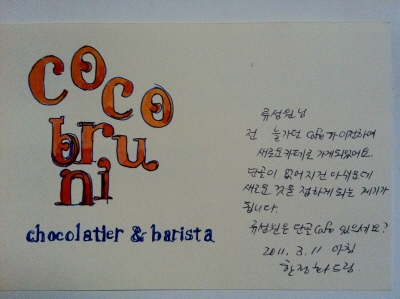 coco
bru
ni
chocolatier & barista
류성원님
전 늘가던 Cafe가 이전하여
새로운카페로 가게되었어요.
단골이 없어지진 아쉬운데
새로운 것을 접하게 되는 계기가
됩니다.
류성원은 단골Cafe 있으세요?
2011. 3. 11 아침
드림